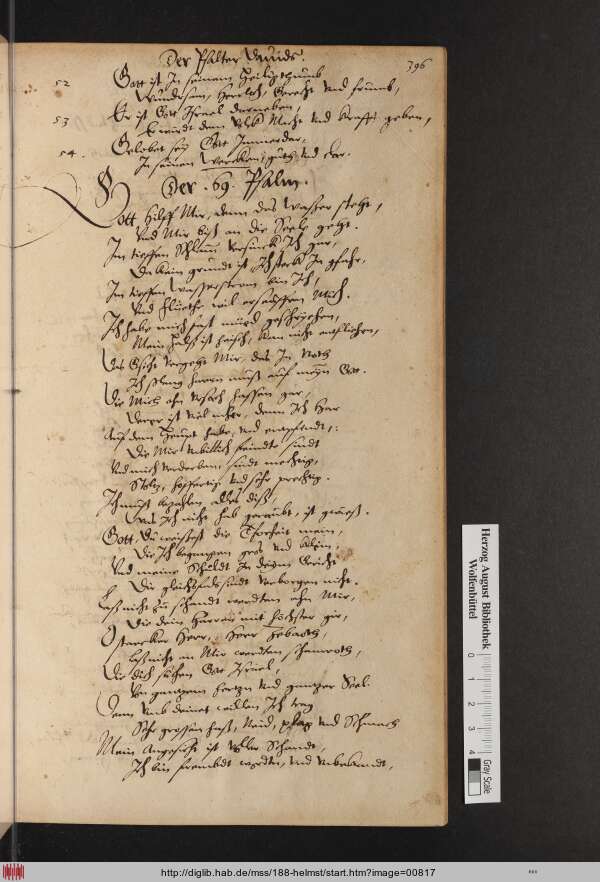 Der Psalter Dauids.
396
52 Gott ist In seinem Heiligthumb
Wundersam, herrlich, Gerecht Vnd frumb,
53 Er ist Gott Israel darneben,
Er wirdt dem Volk Macht Vnd Krafft geben,
54. Gelobet sey Gott Immerdar,
In seinen Wercken, guth Vnd
Der .69. Psalm.
Gott hilff Mir, denn das Wasser steht,
Vnd Mir biß an die Seele geht.
Im tieffen Schlam Versinck Ich gar,
Da kein grundt ist, Ich steck In gfahr,
Im tieffen Wasserstrom bin Ich,
Vnd Fluethe wil ersäuffen Mich.
Ich habe mich fast müed geschryehen,
Mein Halß ist heisch, kan nicht
Das Gsicht Vergeht Mir, das In Noth
Ich so lang harren muß auf meyn Got.
Die Mich ohn Vrsach hassen gar,
Derer ist viel mher, denn Ich Har
Auf dem Haupt habe, vnd
Die Mir Vnbillich feindt sindt
Vnd mich Verderben, sindt mechtig,
Stoltz, hoffertig Vnd sehr prechtig.
Ich muß bezahlen alles diß,
Das Ich nicht hab geraubt, ist gwiß.
Gott, Du weissest die Thorheit mein,
Die Ich begangen gros vnd klein,
Vnd meine Schuldt In deym Gesicht
Die sindt Verborgen nicht.
Laß nicht zu schandt werdten ahn Mir,
Die dein Harren mit höchster gir,
O starcker Herr, Herr Zebaoth,
Laß nicht an Mir werden schamroth,
Die dich suchen Got Israel,
Von gantzem hertzn Vnd gantzer Seel.
Denn Vmb deinet willen Ich trag
Sehr grossen haß, Neid, plag Vnd Schmach
Mein Angesicht ist Voller Schandt,
Ich bin frembdt worden, Vnd Vnbekandt,
Herzog August Bibliothek
Wolfenbüttel
0 1 2 3 4
Gray Scale
http://diglib.hab.de/mss/188-helmst/start.htm?image=00817